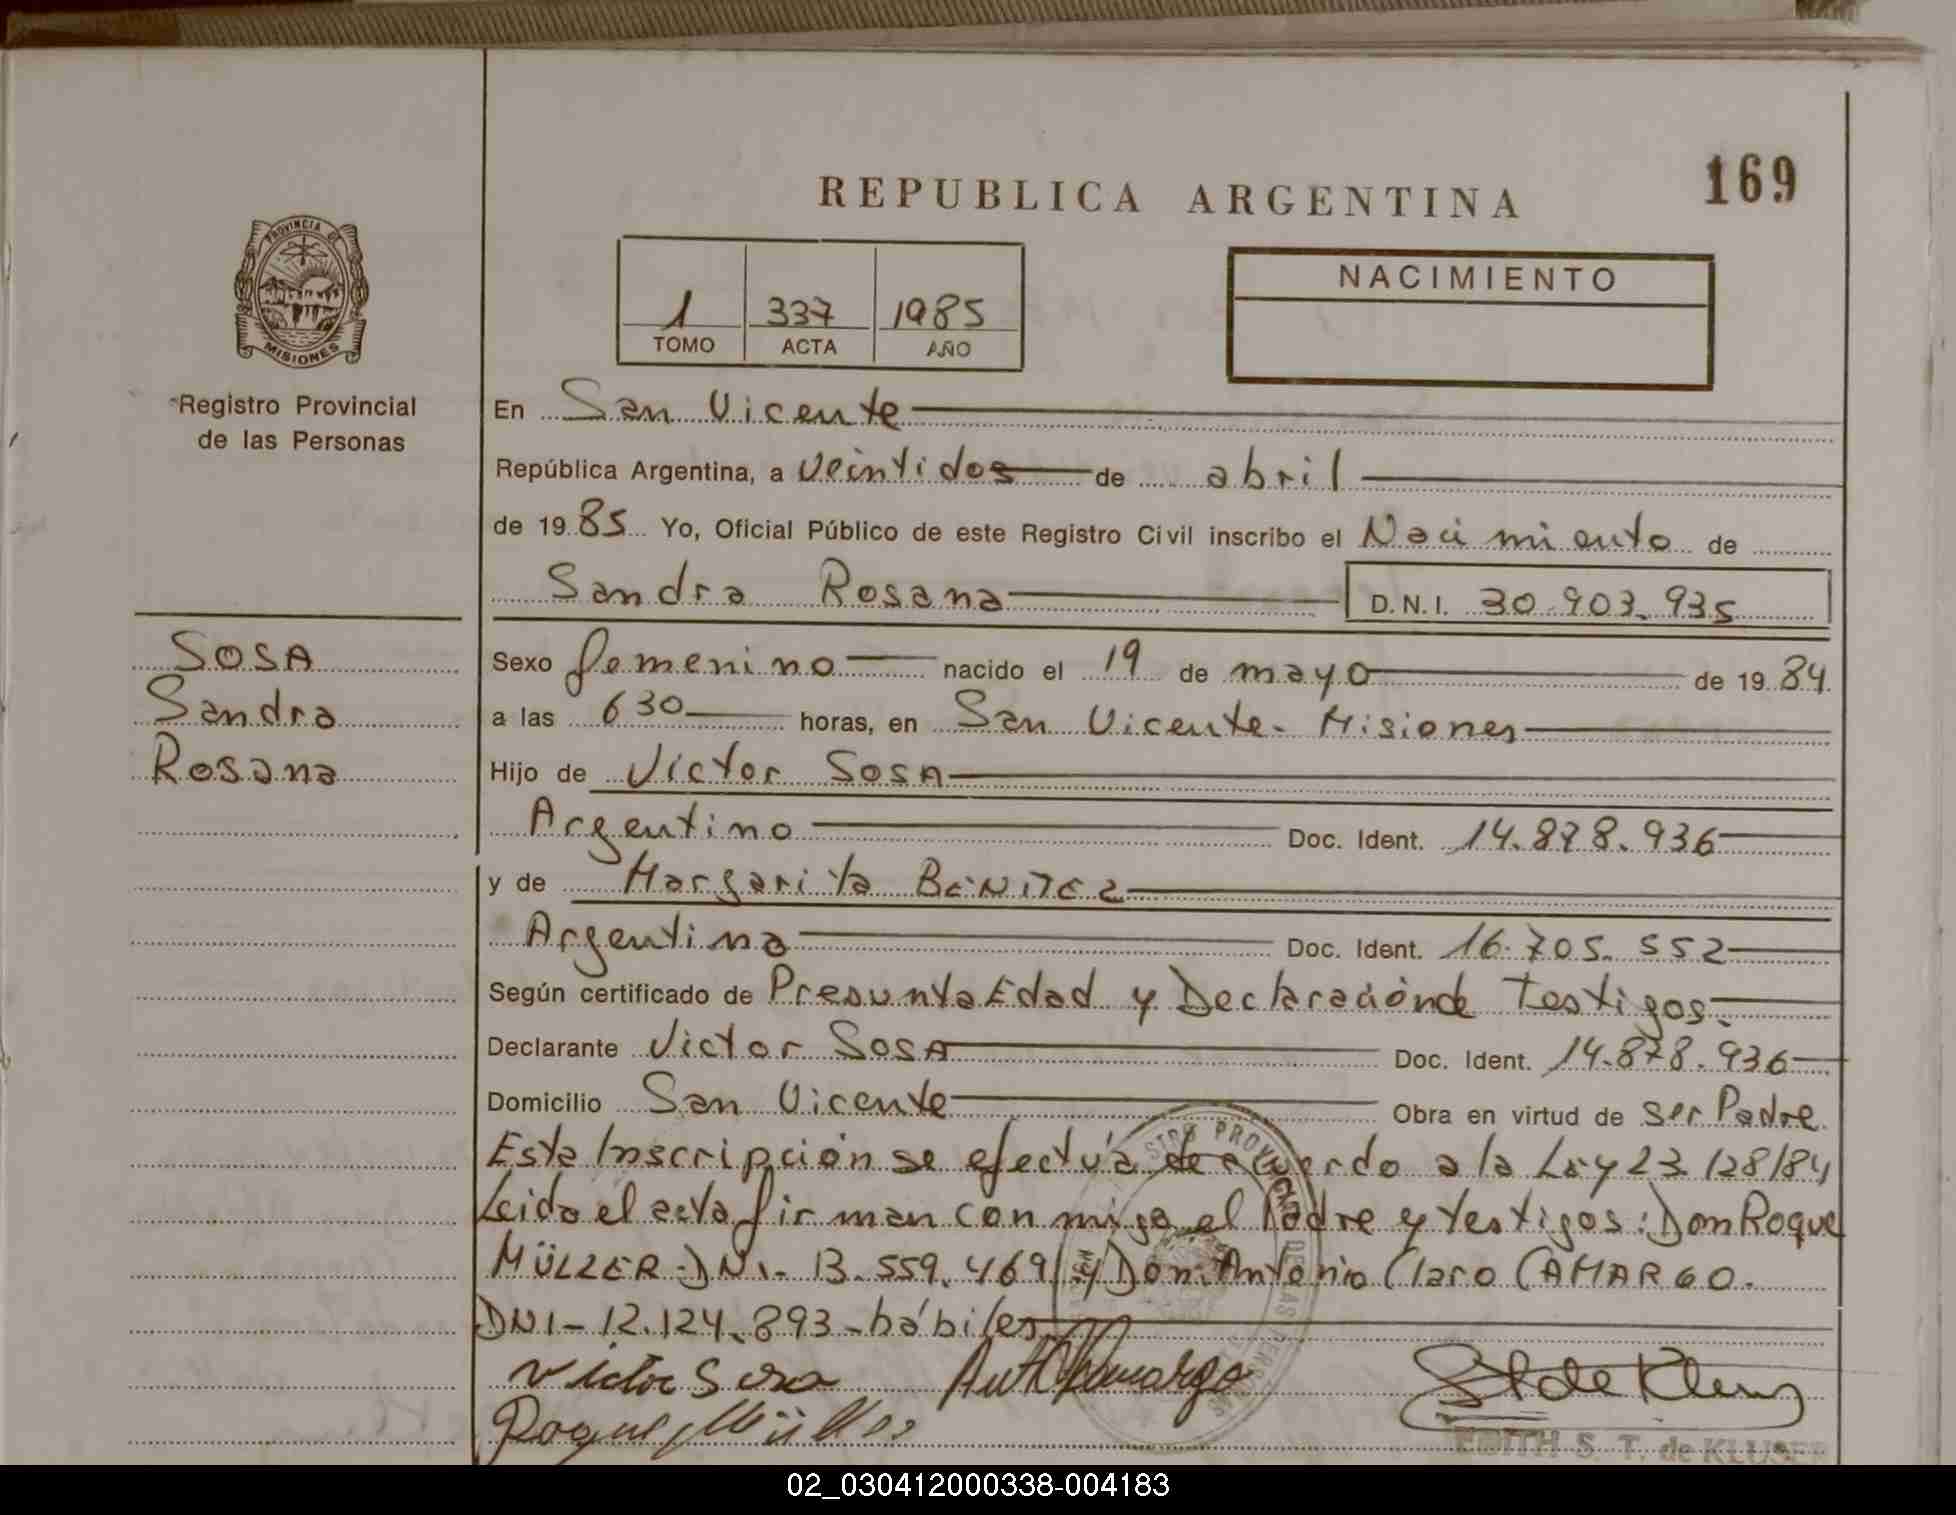 REPUBLICA ARGENTINA
169
PROVINCIA DE
MISIONES
Registro Provincial
de las Personas
1 337 1985
TOMO ACTA AÑO
NACIMIENTO
En San Vicente
República Argentina, a veintidos de abril
de 1985 Yo, Oficial Público de este Registro Civil inscribo el Nacimiento de
Sandra Rosana D.N.I. 30.903.935
SOSA
Sandra
Rosana
Sexo femenino nacido el 19 de mayo de 1984.
a las 6 30 horas, en San Vicente - Misiones
Hijo de Victor SOSA
Argentino Doc. Ident. 14.878.936
y de Margarita BENITEZ
Argentina Doc. Ident. 16.705.552
Según certificado de Presunta Edad y Declaración de Testigos.
Declarante Victor SOSA Doc. Ident. 14.878.936
Domicilio San Vicente Obra en virtud de ser Padre.
Esta Inscripción se efectúa de acuerdo a la Ley 23.128/84
Leida el acta firman conmigo el Padre y testigos: Don Roque
MÜLLER - DNI - 13.559.469 y Don Antonio Claro CAMARGO.
DNI - 12.124.893 - hábiles
Victor Sosa Ant C Camargo St de Kluser
Roque Müller
EDITH S. T. de KLUSER
02_030412000338-004183